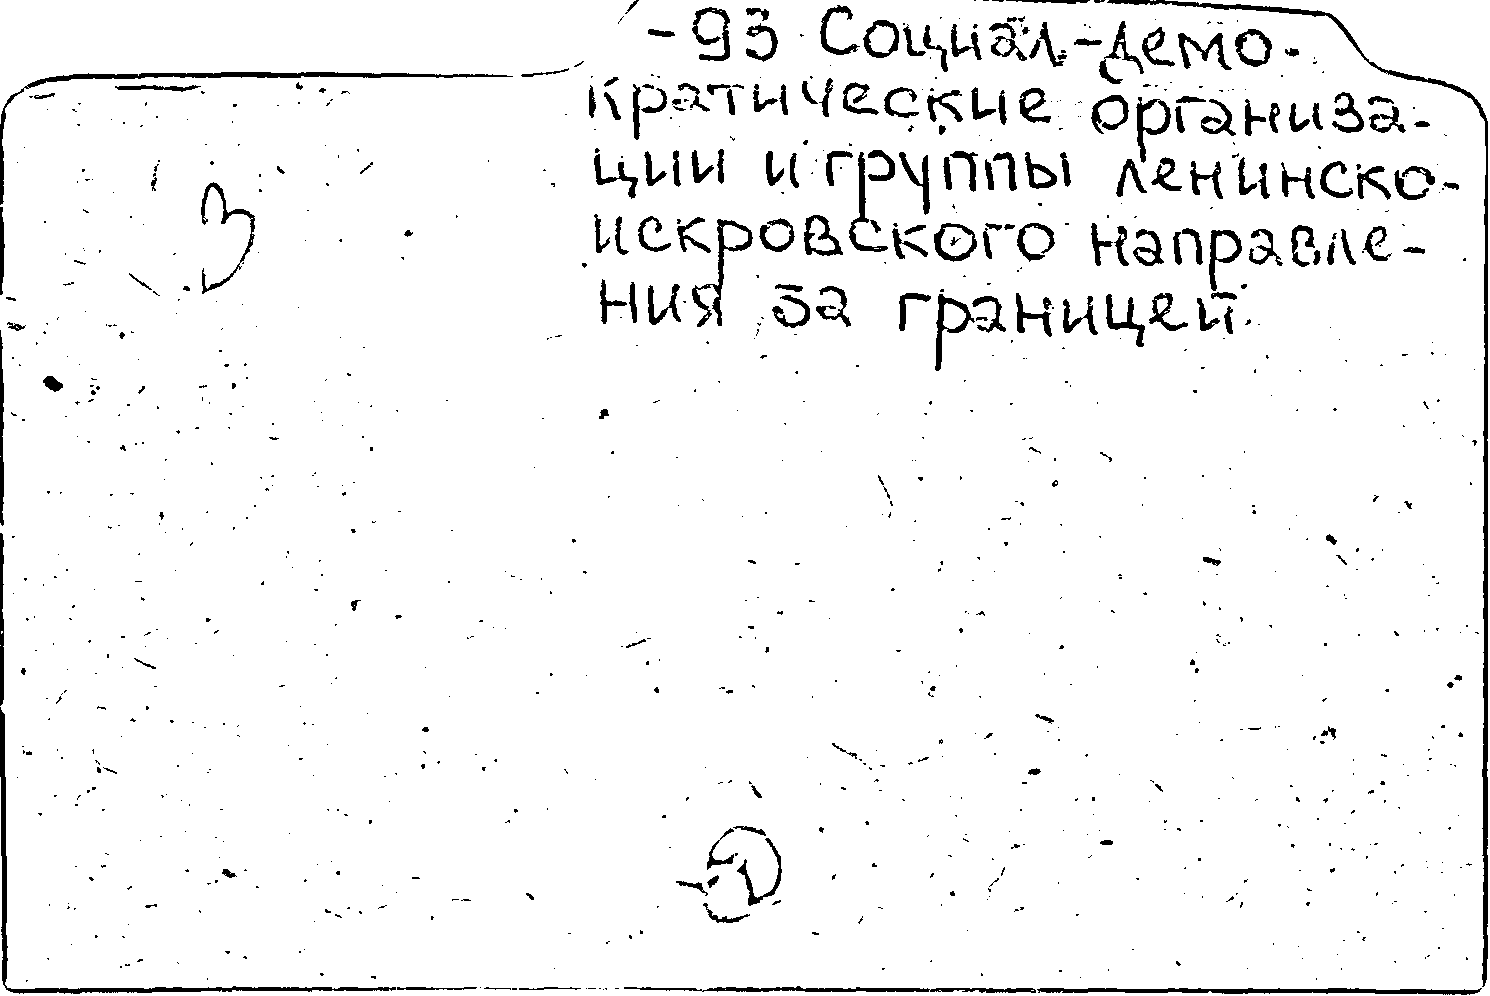 -93 Социал-демо-
кратические организа-
ции и группы ленинско-
искровского направле-
ния за границей.
3